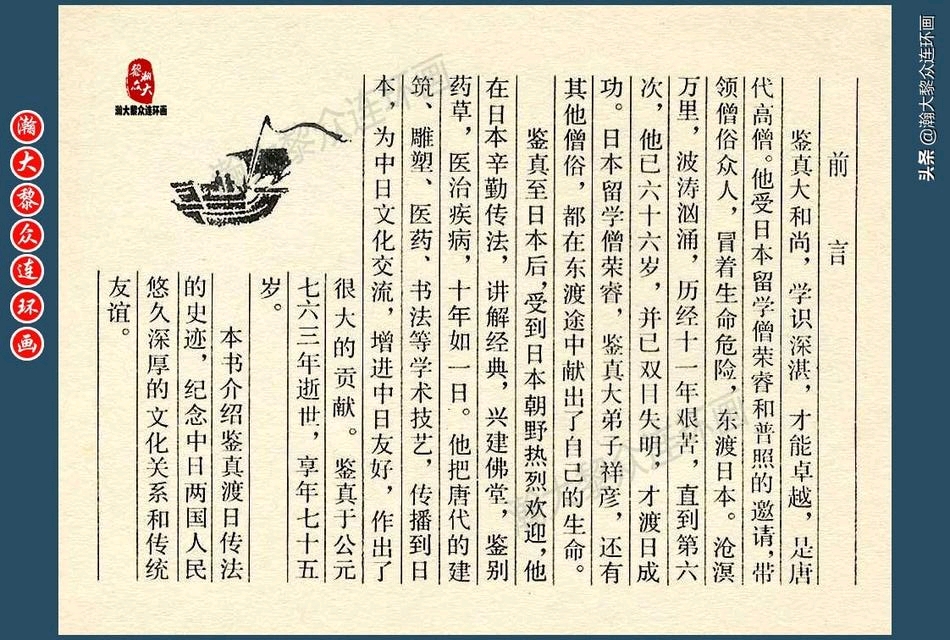 前言
鉴真大和尚，学识深湛，才能卓越，是唐
代高僧。他受日本留学僧荣睿和普照的邀请，带
领僧俗众人，冒着生命危险，东渡日本。沧溟
万里，波涛汹涌，历经十一年艰苦，直到第六
次，他已六十六岁，并已双目失明，才渡日成
功。日本留学僧荣睿，鉴真大弟子祥彦，还有
其他僧俗，都在东渡途中献出了自己的生命。
鉴真至日本后，受到日本朝野热烈欢迎，他
在日本辛勤传法，讲解经典，兴建佛堂，鉴别
药草，医治疾病，十年如一日。他把唐代的建
筑、雕塑、医药、书法等学术技艺，传播到日
本，为中日文化交流，增进中日友好，作出了
很大的贡献。鉴真于公元
七六三年逝世，享年七十五
岁。
本书介绍鉴真渡日传法
的史迹，纪念中日两国人民
悠久深厚的文化关系和传统
友谊。
瀚大黎众
瀚大黎众连环画
瀚大黎众连环画
头条 @瀚大黎众连环画
瀚大黎众连环画
瀚大黎众连环画